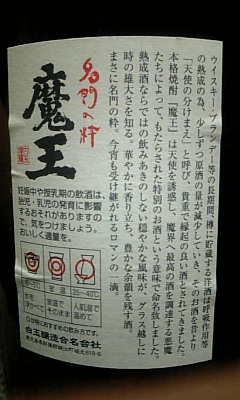 ウイスキー・ブランデー等の長期間、樽に貯蔵する洋酒は呼吸作用等
の熟成の為、少しずつ原酒の量が減少していく。そのお酒を昔より
「天使の分けまえ」と呼び、貴重で縁起の良い酒とされてきました。
本格焼酎「魔王」は天使を誘惑し、魔界へ最高の酒を調達する悪魔
たちによって、もたらされた特別のお酒という意味で命名致しました。
熟成酒ならではの飲みあきのしない穏やかな風味が、グラス越しに
時の雄大さを知る。華やかに香り立ち、豊かな余韻を残す酒。
まさに名門の粋。今宵も受け継がれるロマンの一滴。
名門の粋
魔王
妊娠中や授乳期の飲酒は、
胎児・乳児の発育に影響
するおそれがありますの
で、気をつけましょう。
おいしく適量を。
室温
35〜40℃
氷で
室温で
そのまま
人肌温で
温めて
白玉醸造合名会社